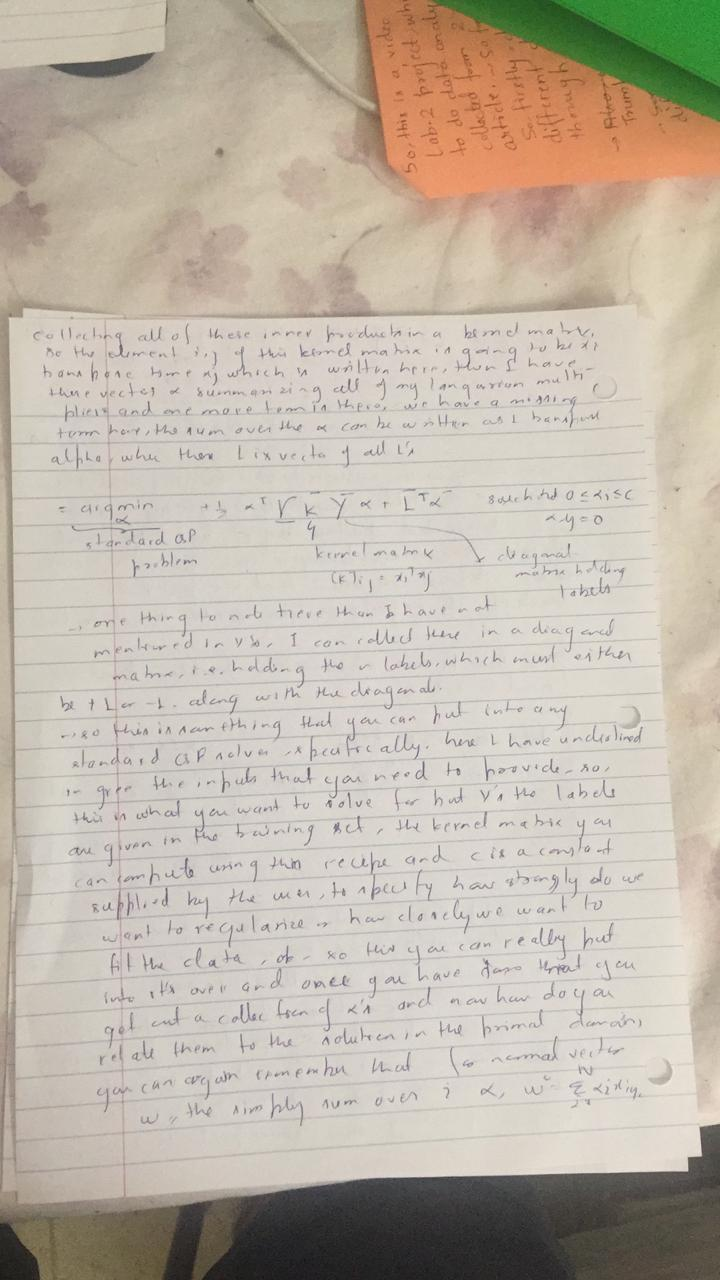 So, this is a video
Lab-2 project, whi
to do data analy
collected from 2
article. So f
So, firstly
different
through
Trump
collecting all of these inner products in a kernel matrix,
so the element i,j of this kernel matrix is going to be xi
transpose time xj which is written here, then I have
these vector α summarizing all of my langarian multi-
pliers and one more term in there, we have a missing
term here, the sum over the α can be written as 1 transpose
alpha, whu there 1 is vector of all 1's
= argmin + 1/2 αᵀ Y K Y α + 1ᵀα such that 0 ≤ αi ≤ C
α
α y = 0
standard QP
problem
kernel matrix
(K)ij = xiᵀxj
diagonal
matrix holding
labels
→ one thing to note here than I have not
mentioned in Y's, I can collect these in a diagonal
matrix, i.e. holding the n labels, which must either
be +1 or -1. along with the diagonals.
→ so this is something that you can put into any
standard QP solver specifically. here I have underlined
in green the inputs that you need to provide, so,
this is what you want to solve for but Y's the labels
are given in the training set, the kernel matrix you
can compute using this recipe and c is a constant
supplied by the user, to specify how strongly do we
want to regularize or how closely we want to
fit the data, ok, so this you can really put
into it's over and once you have that you
get out a collection of α's and now how do you
relate them to the solution in the primal domain,
you can again remember that normal vector
w, the simply sum over i α, w = Σ αi xi yi